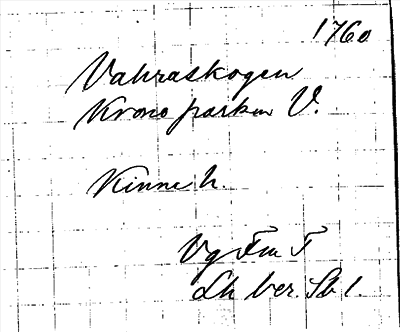 1760
Vahraskogen
Kronoparken V.
Kinne h.
Vg Fm T
Lh ber. Sb 1.